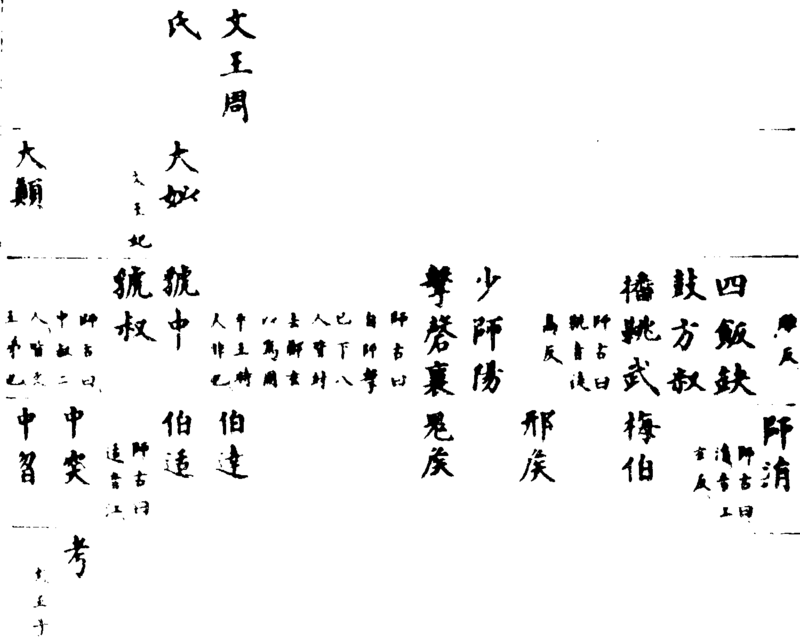 文王周
氏
大姒
文王妃
大顛
離反
四飯缺
鼓方叔
播鞉武
師古曰
鞉音徒
高反
少師陽
擊磬襄
師古曰
自師摯
已下八
人皆紂
去鄭玄
以為周
平王時
人非也
虢中
虢叔
師古曰
中叔二
人皆文
王弟也
師涓
師古曰
涓音工
玄反
梅伯
邢侯
鬼侯
伯達
伯适
師古曰
适音江
中突
中曶
考
文王子